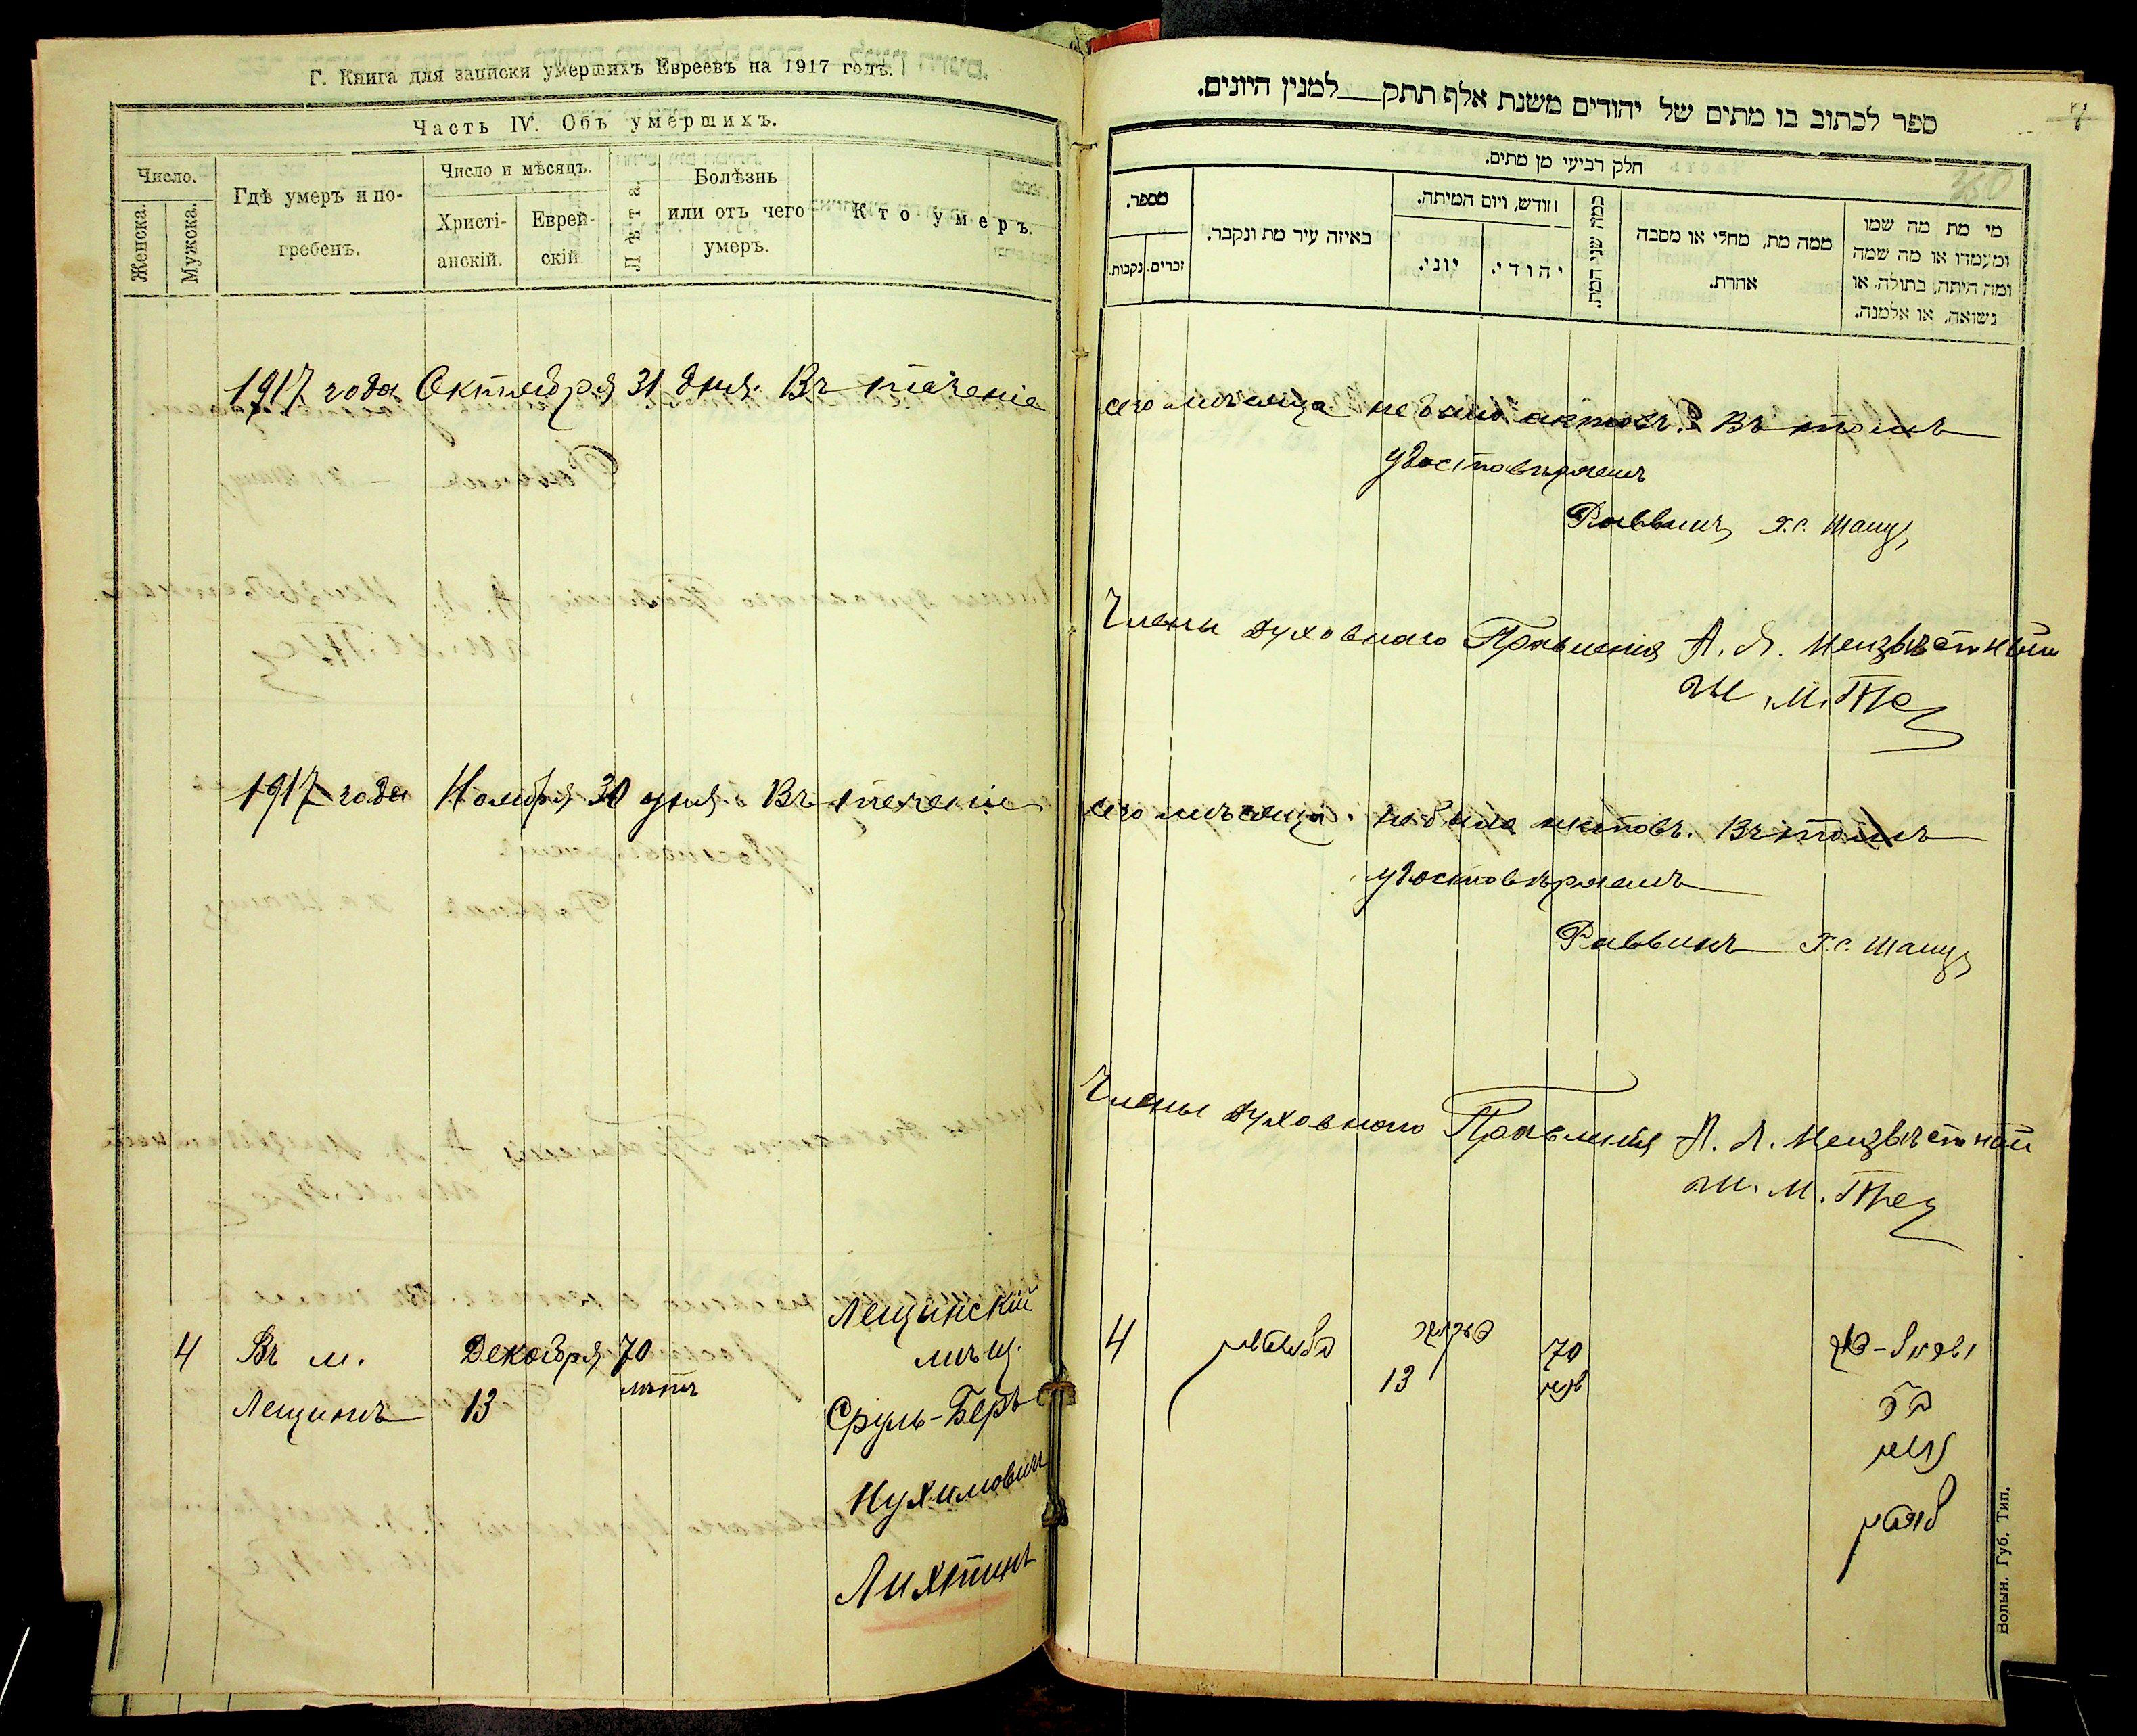 Г. Книга для записки умершихъ Евреевъ на 1917 годъ.
Часть IV. Объ умершихъ.
Число.
Женска.
Мужска.
Гдѣ умеръ и по-
гребенъ.
Число и мѣсяцъ.
Христі-
анскій.
Еврей-
скій
Лѣта.
Болѣзнь
или отъ чего
умеръ.
Кто умеръ.
1917 года Октября 31 дня. Въ теченіе
1917 года Ноября 30 дня Въ теченіе
4
Въ м.
Лещинъ
Декабря
13
70
лѣтъ
Лещинскій
мѣщ.
Сруль-Беръ
Нухимовичъ
Лихтинъ
ספר לכתוב בו מתים של יהודים משנת אלף תתק למנין היונים.
7
350
חלק רביעי מן מתים.
מספר.
נקבות.
זכרים.
באיזה עיר מת ונקבר.
חודש, ויום המיתה.
יוני.
יהודי.
כמה שני המת.
ממה מת, מחלי או מסבה
אחרת.
מי מת מה שמו
ומעמדו או מה שמה
ומה היתה, בתולה, או
נשואה, או אלמנה.
сего мѣсяца не было актовъ. Въ томъ
удостовѣряемъ
Раввинъ Х.с. Шапу
Члены духовнаго Правленія А. Л. Неизвѣстный
Ш. М.
1917
сего мѣсяца не было актовъ. Въ томъ
удостовѣряемъ
Раввинъ Х.с. Шапу
Члены духовнаго Правленія А. Л. Неизвѣстный
Ш. М.
4
13
70
Волын. Губ. Тип.